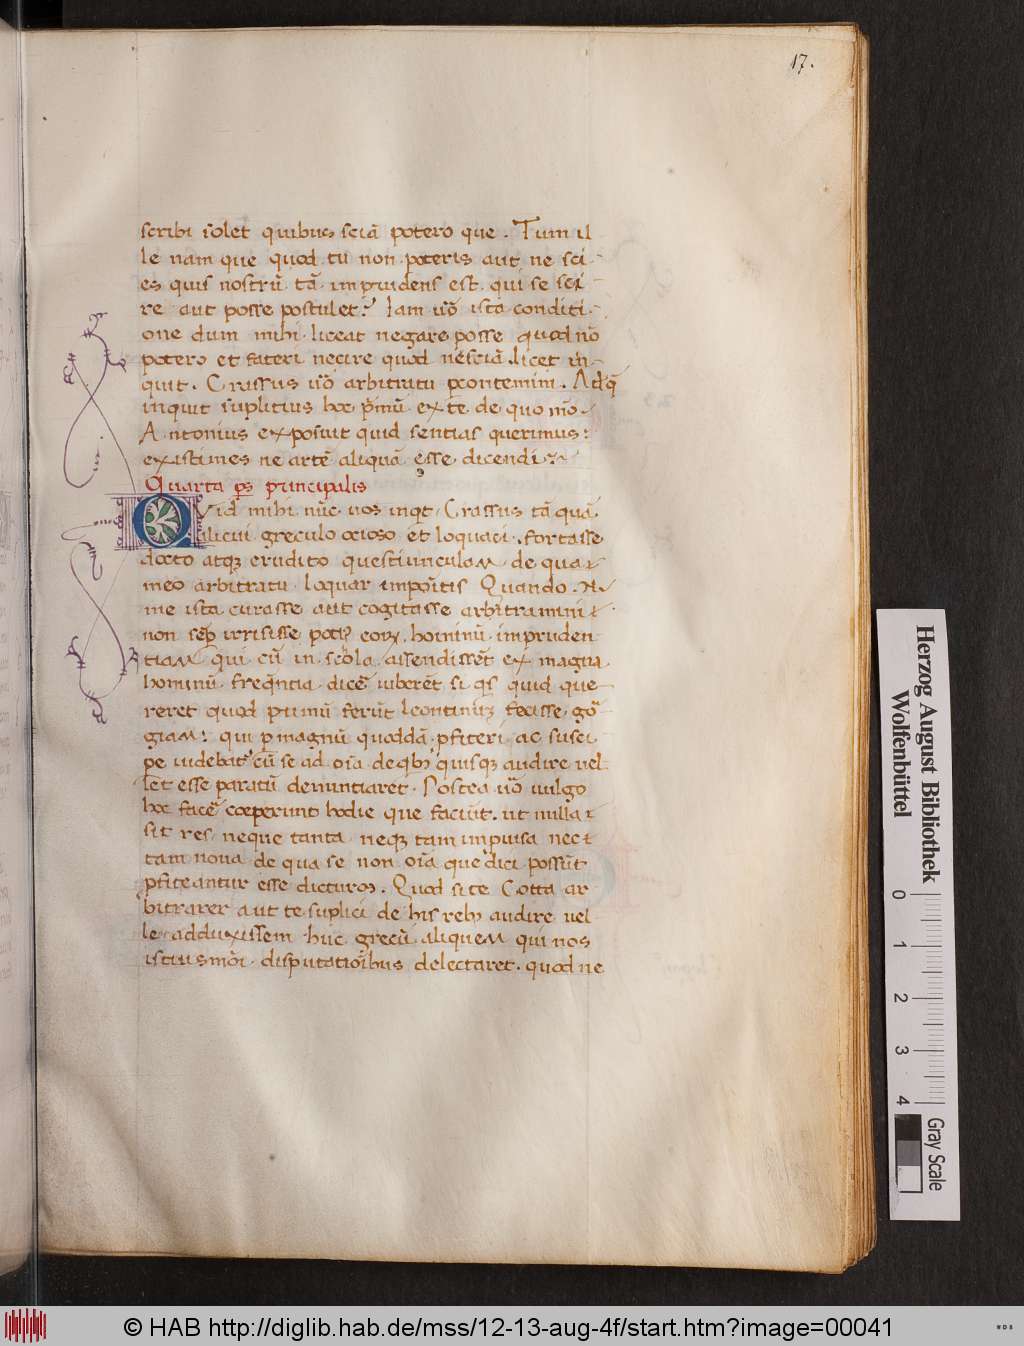 17.
scribi solet quibus sciā potero que. Tum il
le nam que quod tu non poteris aut ne sci
es quis nostrū tā imprudens est qui se sci
re aut posse postulet? Iam u̅o ista conditi
one dum mihi liceat negare posse quod nō
potero et fateri necire quod nesciā licet in
quit. Crassus u̅o arbitratu
inquit suplitius hoc p̄mū ex te de quo mō
Antonius exposuit quid sentias querimus:
existimes ne artē aliquā esse dicendi?
Quarta ps principalis
QVid mihi nūc uos inqt Crassus tā quā
alicui greculo ocioso et loquaci fortasse
docto atqꝫ erudito questiunculam de qua
meo arbitratu loquar imponitis Quando
me ista curasse aut cogitasse arbitramini
non irrisisse hominū impruden
tiam qui cū in scola assendissēt ex magna
hominū freq̄ntia dicē iuberēt si qs quid que
reret quod primū ferūt leontinū fecisse gor
giam: qui p magnū quoddā pfiteri ac susci
pe uidebat cū se ad oīa de qbꝫ quisqꝫ audire uel
let esse paratū denuntiaret. Postea u̅o uulgo
hoc facē coeperunt hodie que faciūt. ut nulla
sit res neque tanta neqꝫ tam impuisa nec
tam noua de qua se non oīa que dici possūt
pfiteantur esse dicturos. Quod si te Cotta ar
bitrarer aut te suplici de his rebꝫ audire uel
le adduxissem huc grecū aliquem qui nos
istiusmōi disputationibus delectaret. quod ne
Herzog August Bibliothek
Wolfenbüttel
0 1 2 3 4
Gray Scale
© HAB http://diglib.hab.de/mss/12-13-aug-4f/start.htm?image=00041